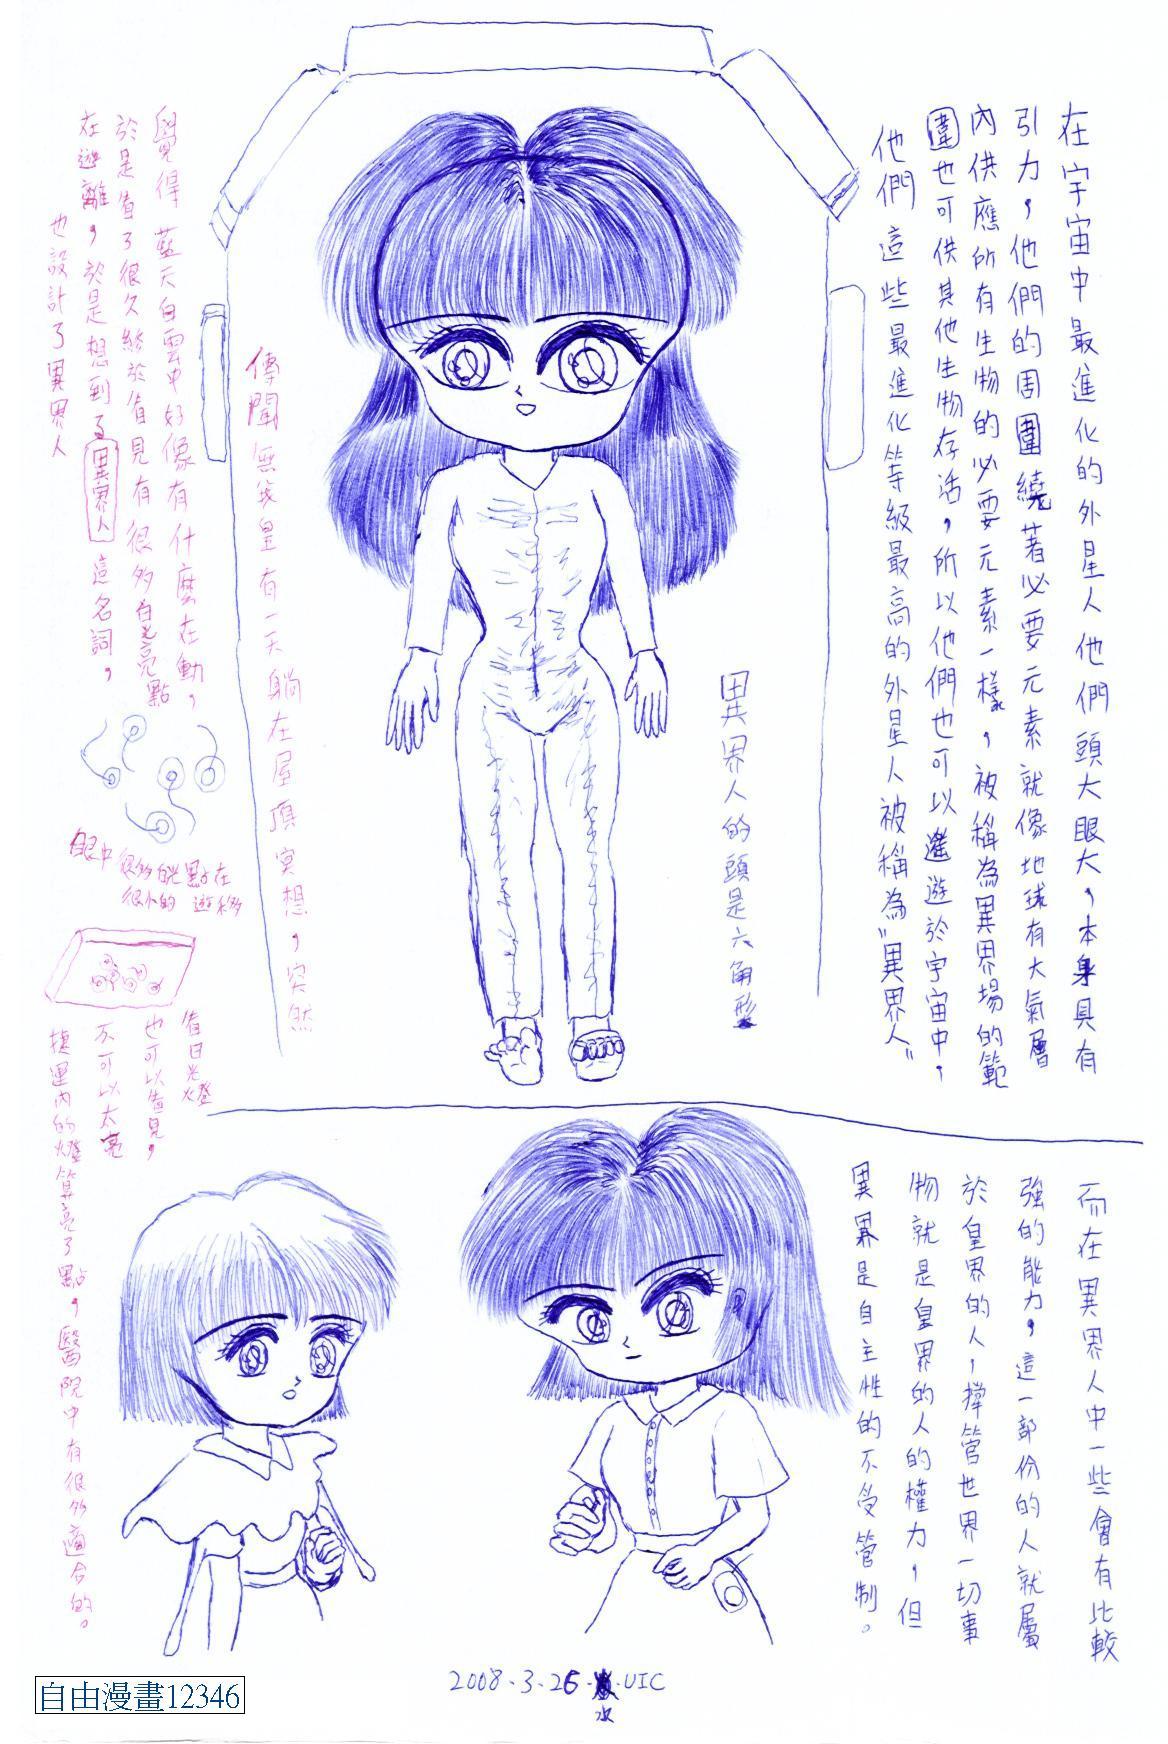 在宇宙中最進化的外星人他們頭大眼大，本身具有
引力，他們的周圍繞著必要元素就像地球有大氣層
內供應所有生物的必要元素一樣，被稱為異界場的範
圍也可供其他生物存活，所以他們也可以遊於宇宙中，
他們這些最進化等級最高的外星人被稱為"異界人"
異界人的頭是六角形
傳聞無笅皇有一天躺在屋頂冥想，突然
覺得藍天白雲中好像有什麼在動，
於是看了很久終於看見有很多白光亮點
在遊離，於是想到了異界人這名詞，
也設計了異界人
眼中很多白光點在
很小的 遊移
看日光燈
也可以看見，
不可以太亮
捷運內的燈算亮了點，醫院中有很多適合的。
而在異界人中一些會有比較
強的能力，這一部份的人就屬
於皇界的人，撑管世界一切事
物就是皇界的人的權力，但
異界是自主性的不受管制。
2008.3.26. UIC
水
自由漫畫12346